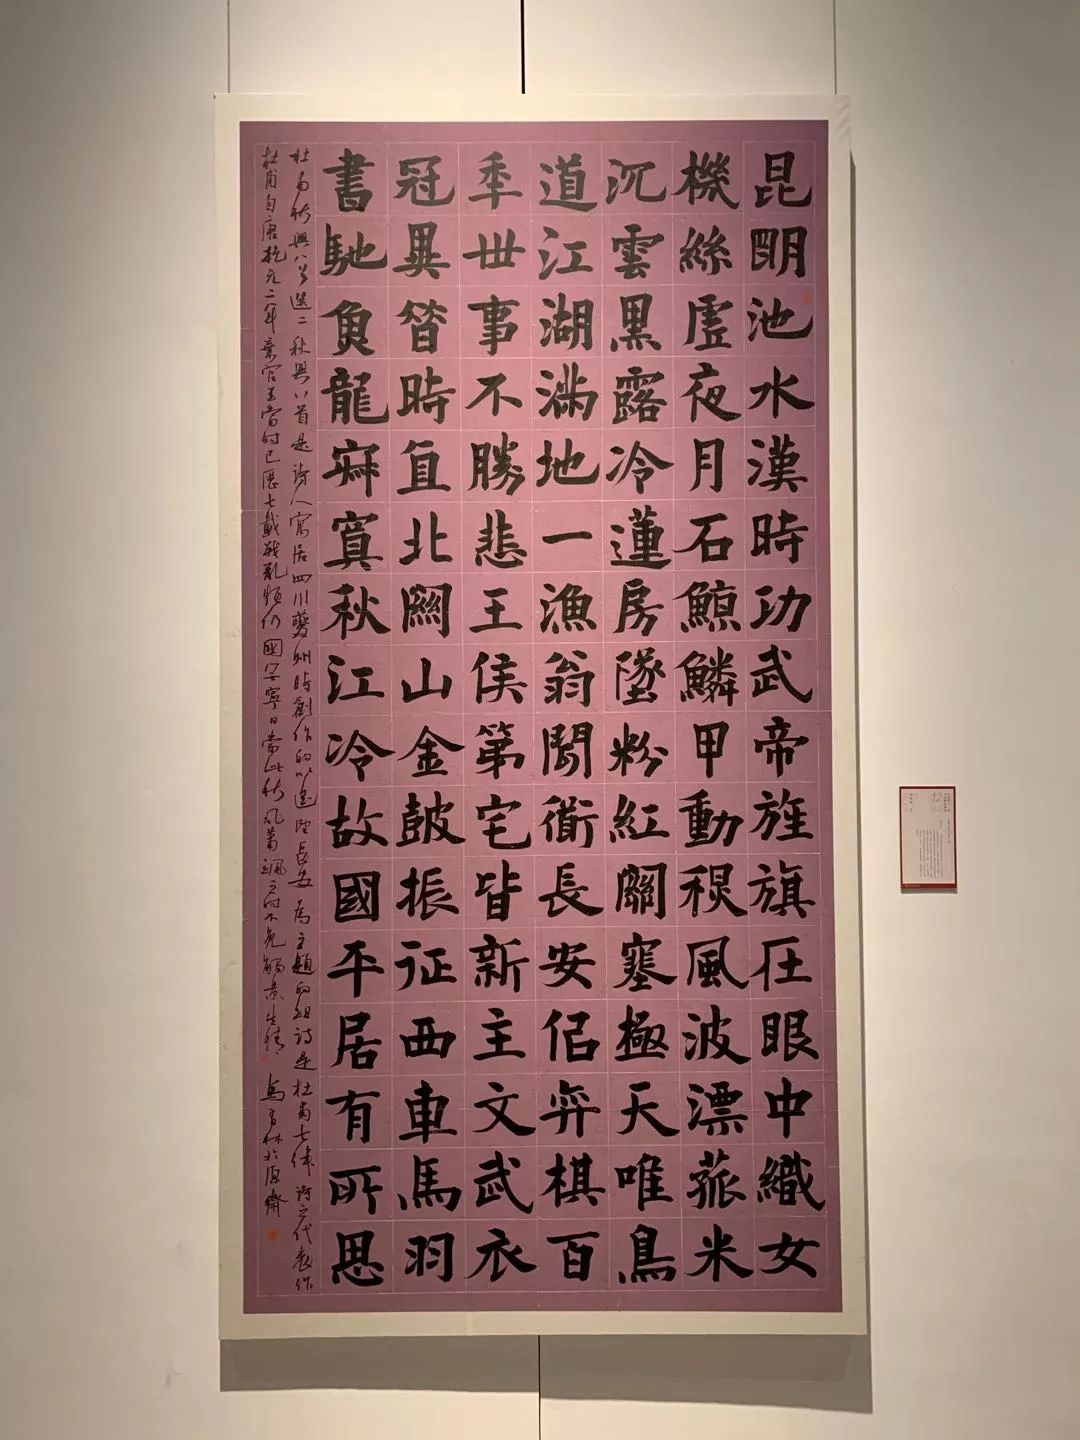 昆明池水漢時功武帝旌旗在眼中織女
機絲虛夜月石鯨鱗甲動秋風波漂菰米
沉雲黑露冷蓮房墜粉紅關塞極天唯鳥
道江湖滿地一漁翁聞衜長安佀弈棋百
年世事不勝悲王侯第宅皆新主文武衣
冠異昔時直北關山金鼓振征西車馬羽
書馳魚龍寂寞秋江冷故國平居有所思
杜甫秋興八首選二秋興八首是詩人寓居四川夔州時創作的以遙望長安為主題的組詩是杜甫七律詩之代表作
杜甫自唐乾元二年棄官至當時已歷七載戰亂頻仍國無寧日當此秋風蕭颯之時不免觸景生情